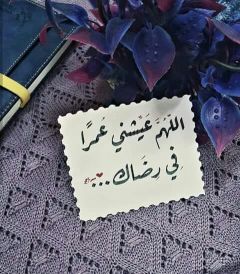 اللهُمَّ عَيِّشني عُمرًا
فِي رِضَاك...